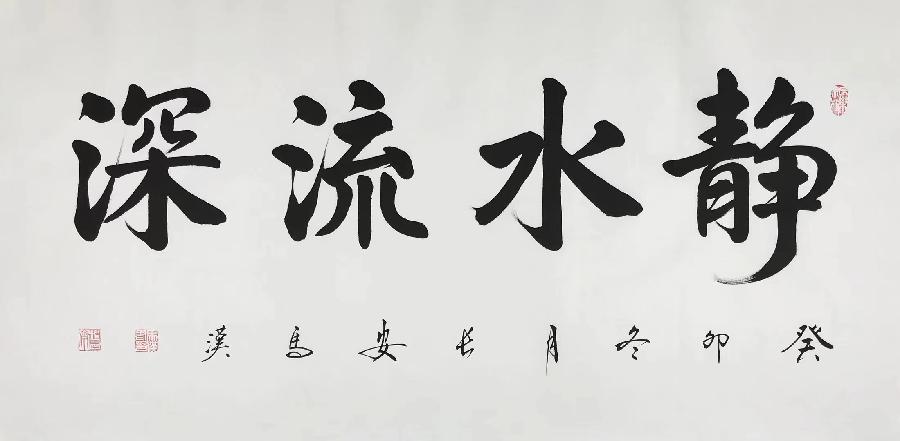 静水流深
癸卯冬月长安马漢